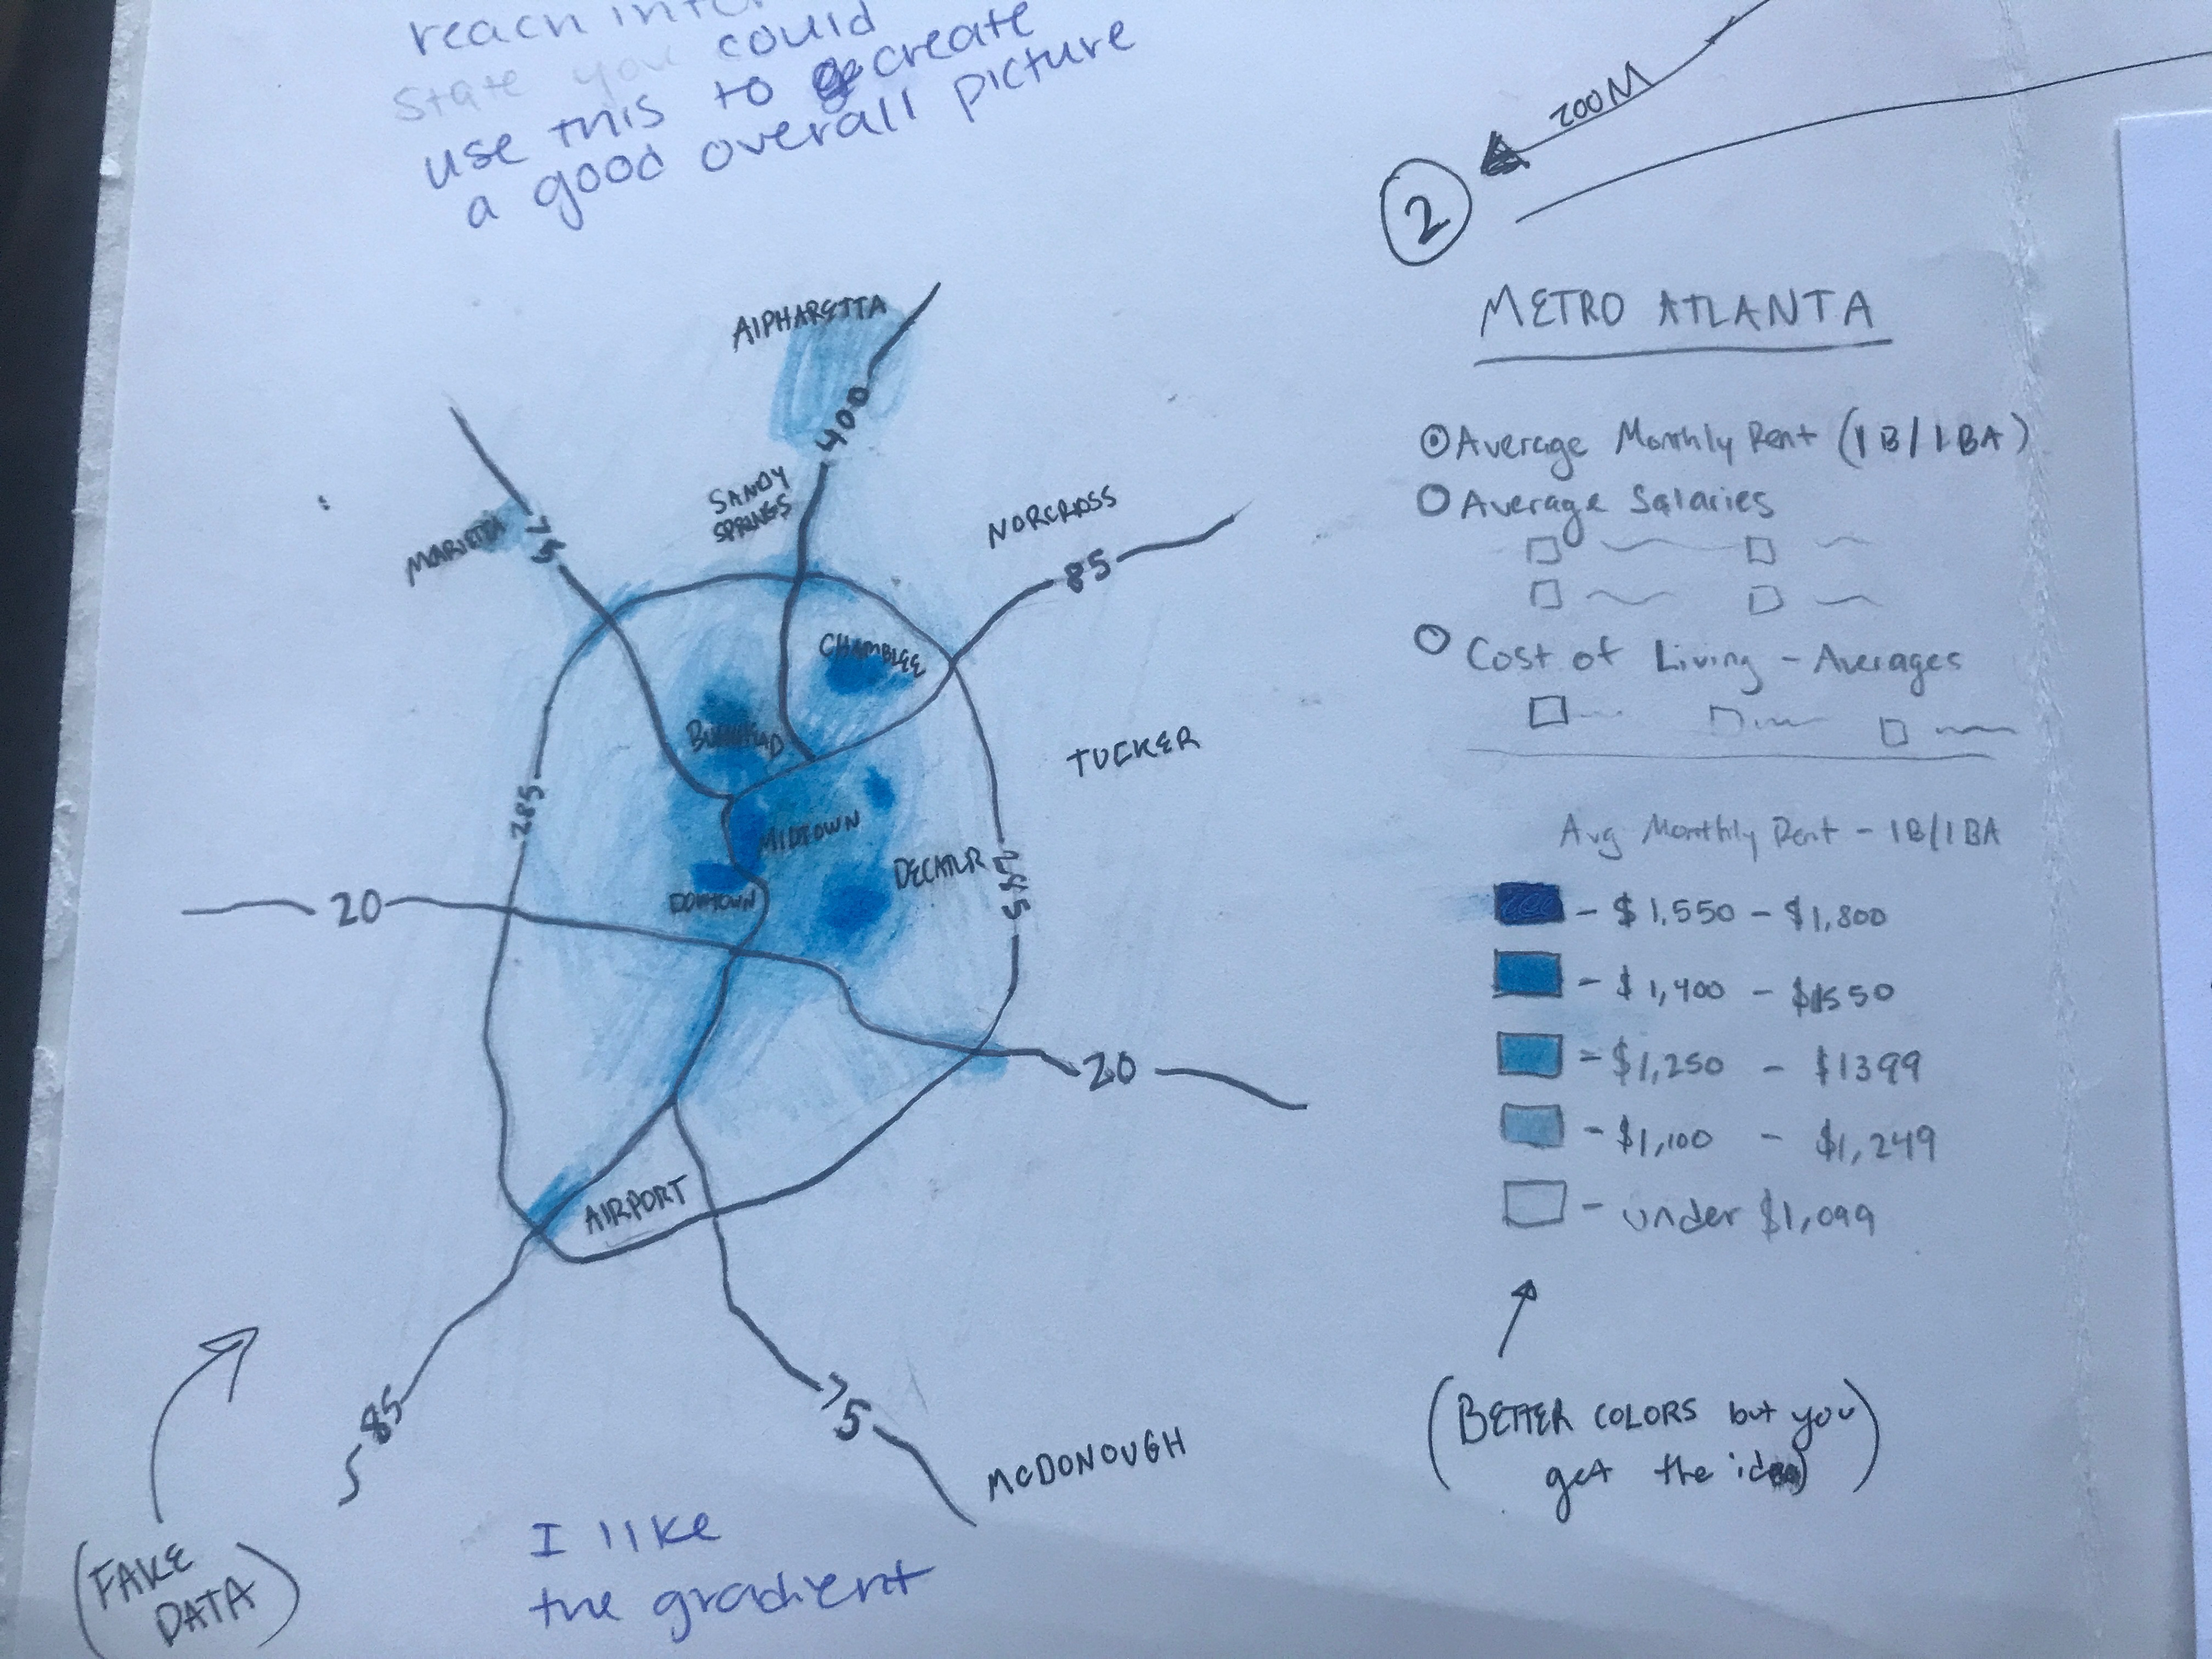 reach inter
state you could
use this to create
a good overall picture
ZOOM
2
METRO ATLANTA
Average Monthly Rent (1B/1BA)
Average Salaries
Cost of Living - Averages
Avg Monthly Rent - 1B/1BA
- $1,550 - $1,800
- $1,400 - $1550
- $1,250 - $1399
- $1,100 - $1,249
- under $1,099
(BETTER COLORS but you
get the idea)
AlPHARETTA
400
MARIETTA
75
SANDY
SPRINGS
NORCROSS
85
CHAMBLEE
BUCKHEAD
TUCKER
285
MIDTOWN
DECATUR
285
DOWNTOWN
20
20
AIRPORT
85
75
MCDONOUGH
(FAKE
DATA)
I like
the gradient